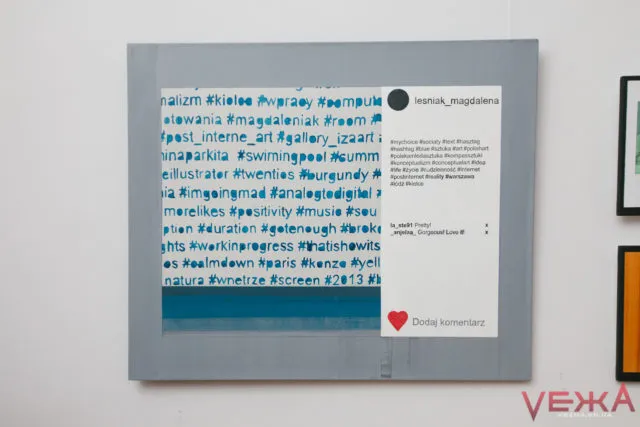 nalizm #kielce #wpracy #comput
otowania #magdaleniak #room #
#post_interne_art #gallery_izaart
ninaparkita #swirningpool #summ
eillustrator #twenties #burgundy #
is #imgoingmad #analogtodigital #
morelikes #positivity #music #sou
ption #duration #gotenough #broke
ghts #workinprogress #thatishowits
os #calmdown #paris #kenzo #yell
natura #wnetrze #screen #2013 #b
lesniak_magdalena
#mychoice #society #text #hasztag
#hashtag #blue #sztuka #art #polishart
#polskamlodasztuka #kompassztuki
#konceptualizm #conceptualart #idea
#life #życie #codzienność #internet
#postinternet #reality #warszawa
#łódź #kielce
la_ste91 Pretty! x
_anjeliza_ Gorgeous! Love it! x
Dodaj komentarz
VEЖA